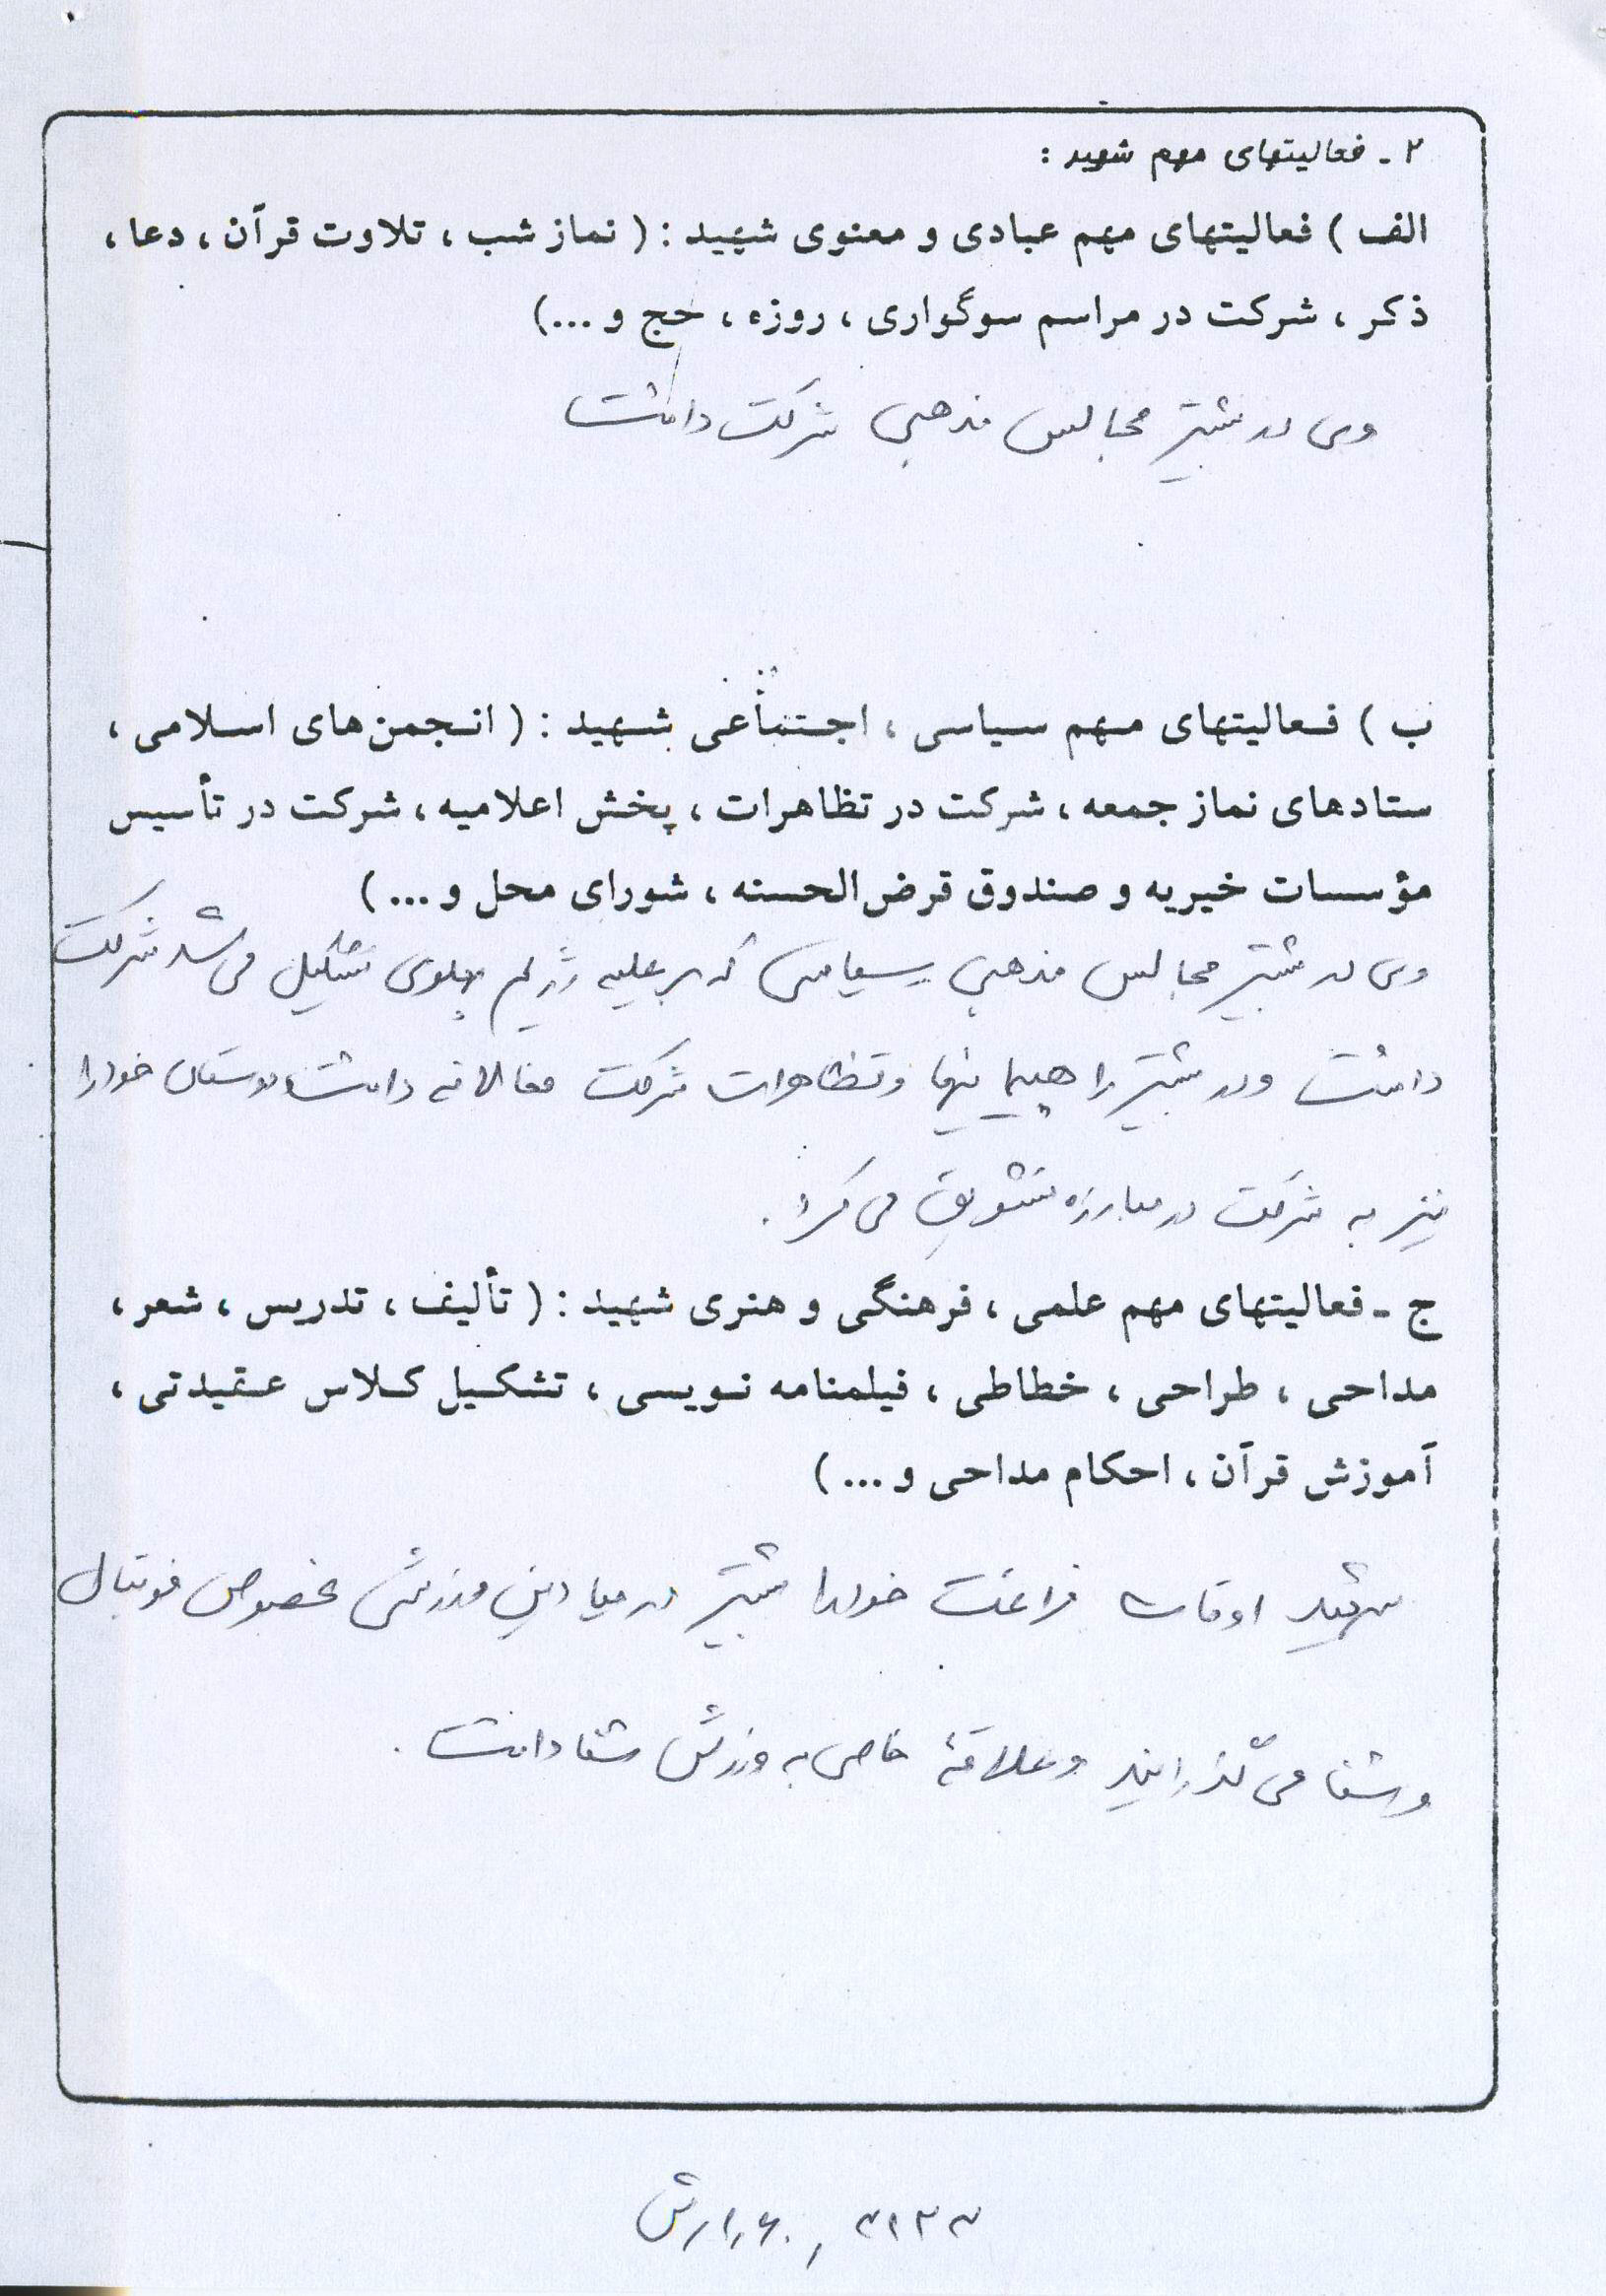 ۲ - فعالیتهای مهم شهید :
الف ) فعالیتهای مهم عبادی و معنوی شهید : ( نماز شب ، تلاوت قرآن ، دعا ،
ذکر ، شرکت در مراسم سوگواری ، روزه ، حج و ...)
وی در بیشتر مجالس مذهبی شرکت داشت
ب ) فعالیتهای مهم سیاسی ، اجتماعی شهید : ( انجمن های اسلامی ،
ستادهای نماز جمعه ، شرکت در تظاهرات ، پخش اعلامیه ، شرکت در تأسیس
مؤسسات خیریه و صندوق قرض الحسنه ، شورای محل و ... )
وی در بیشتر مجالس مذهبی سیاسی که بر علیه رژیم پهلوی تشکیل می شد شرکت
داشت و در بیشتر راهپیمائیها و تظاهرات شرکت فعالانه داشت دوستان خود را
نیز به شرکت در مبارزه تشویق می کرد .
ج - فعالیتهای مهم علمی ، فرهنگی و هنری شهید : ( تألیف ، تدریس ، شعر ،
مداحی ، طراحی ، خطاطی ، فیلمنامه نویسی ، تشکیل کلاس عقیدتی ،
آموزش قرآن ، احکام مداحی و ... )
شهید اوقات فراغت خود را بیشتر در میادین ورزشی بخصوص فوتبال
و شنا می گذرانید و علاقۀ خاصی به ورزش شنا داشت .